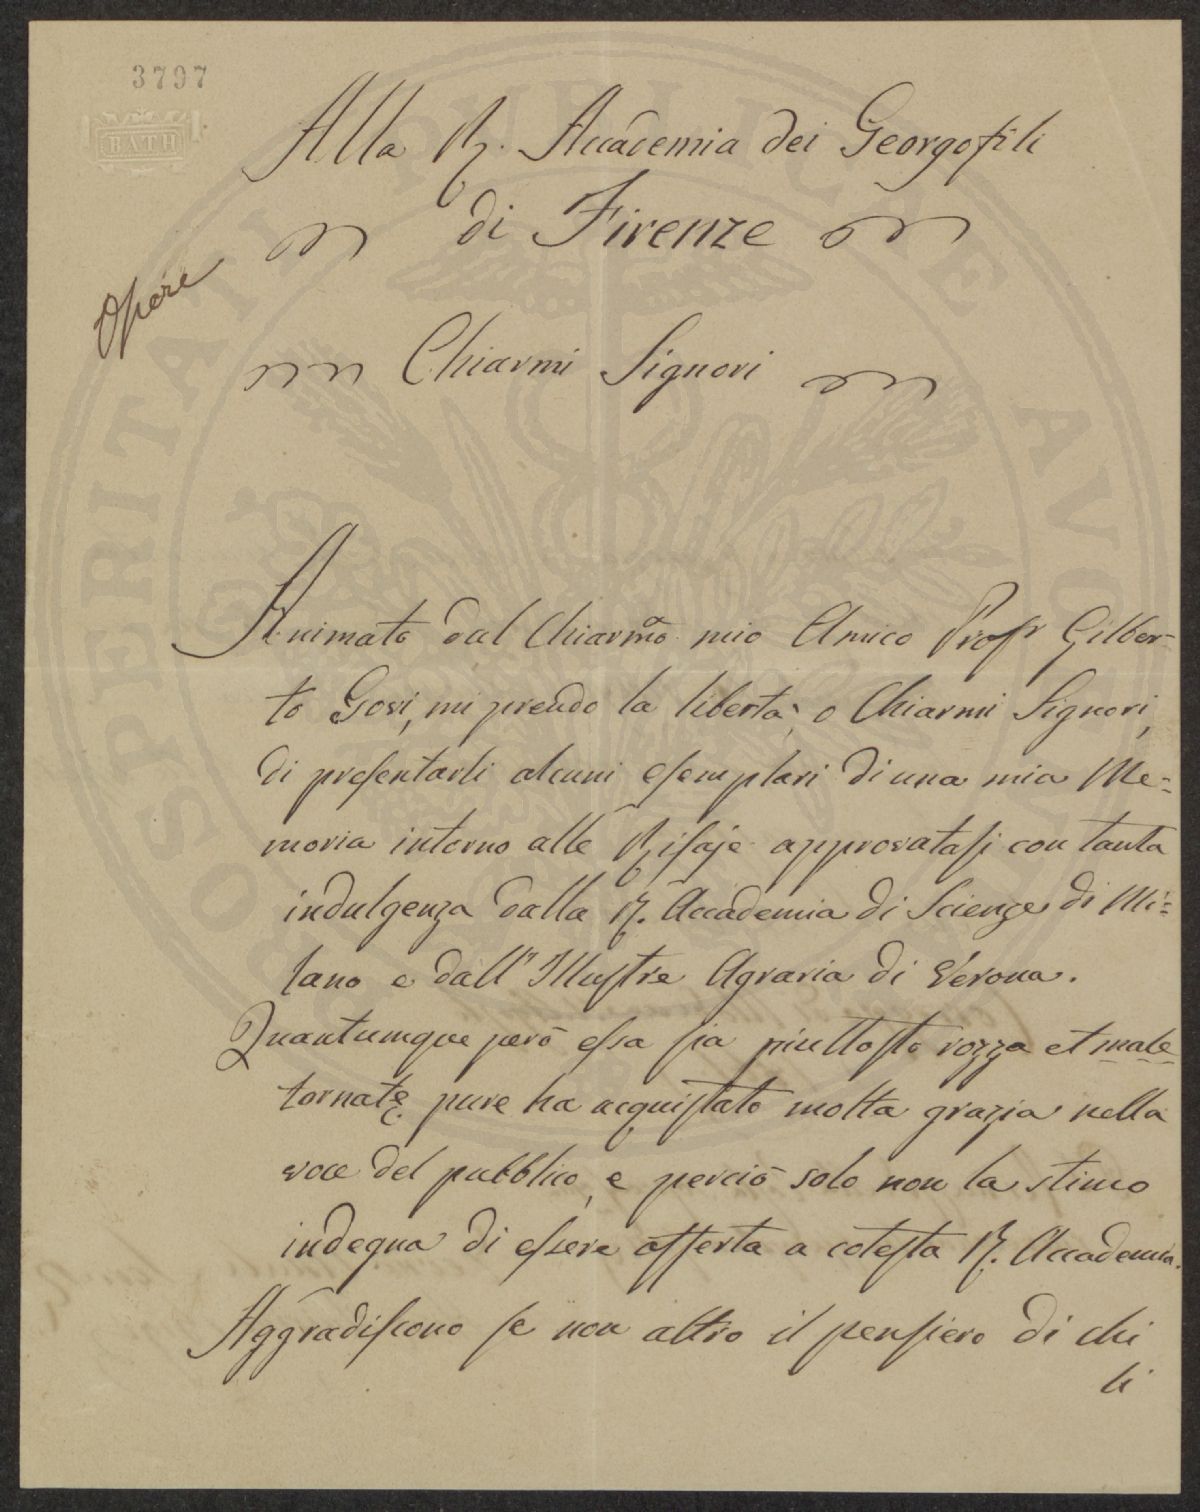 3797
BATH
Alla R. Accademia dei Georgofili
di Firenze
Opere
Chiarmi Signori
Animato dal Chiarmo mio Amico Profr Gilber-
to Govi, mi prendo la libertà, o Chiarmi Signori,
di presentarli alcuni esemplari di una mia Me-
moria intorno alle Risaje approvatasi con tanta
indulgenza dalla R. Accademia di Scienze di Mi-
lano e dall'Illustre Agraria di Verona.
Quantumque però essa sia piuttosto rozza et male
tornate pure ha acquistato molta grazia nella
voce del pubblico, e perciò solo non la stimo
indegna di essere offerta a cotesta R. Accademia.
Aggradiscono se non altro il pensiero di chi
li
PROSPERITATI PUBLICAE AVGENDAE